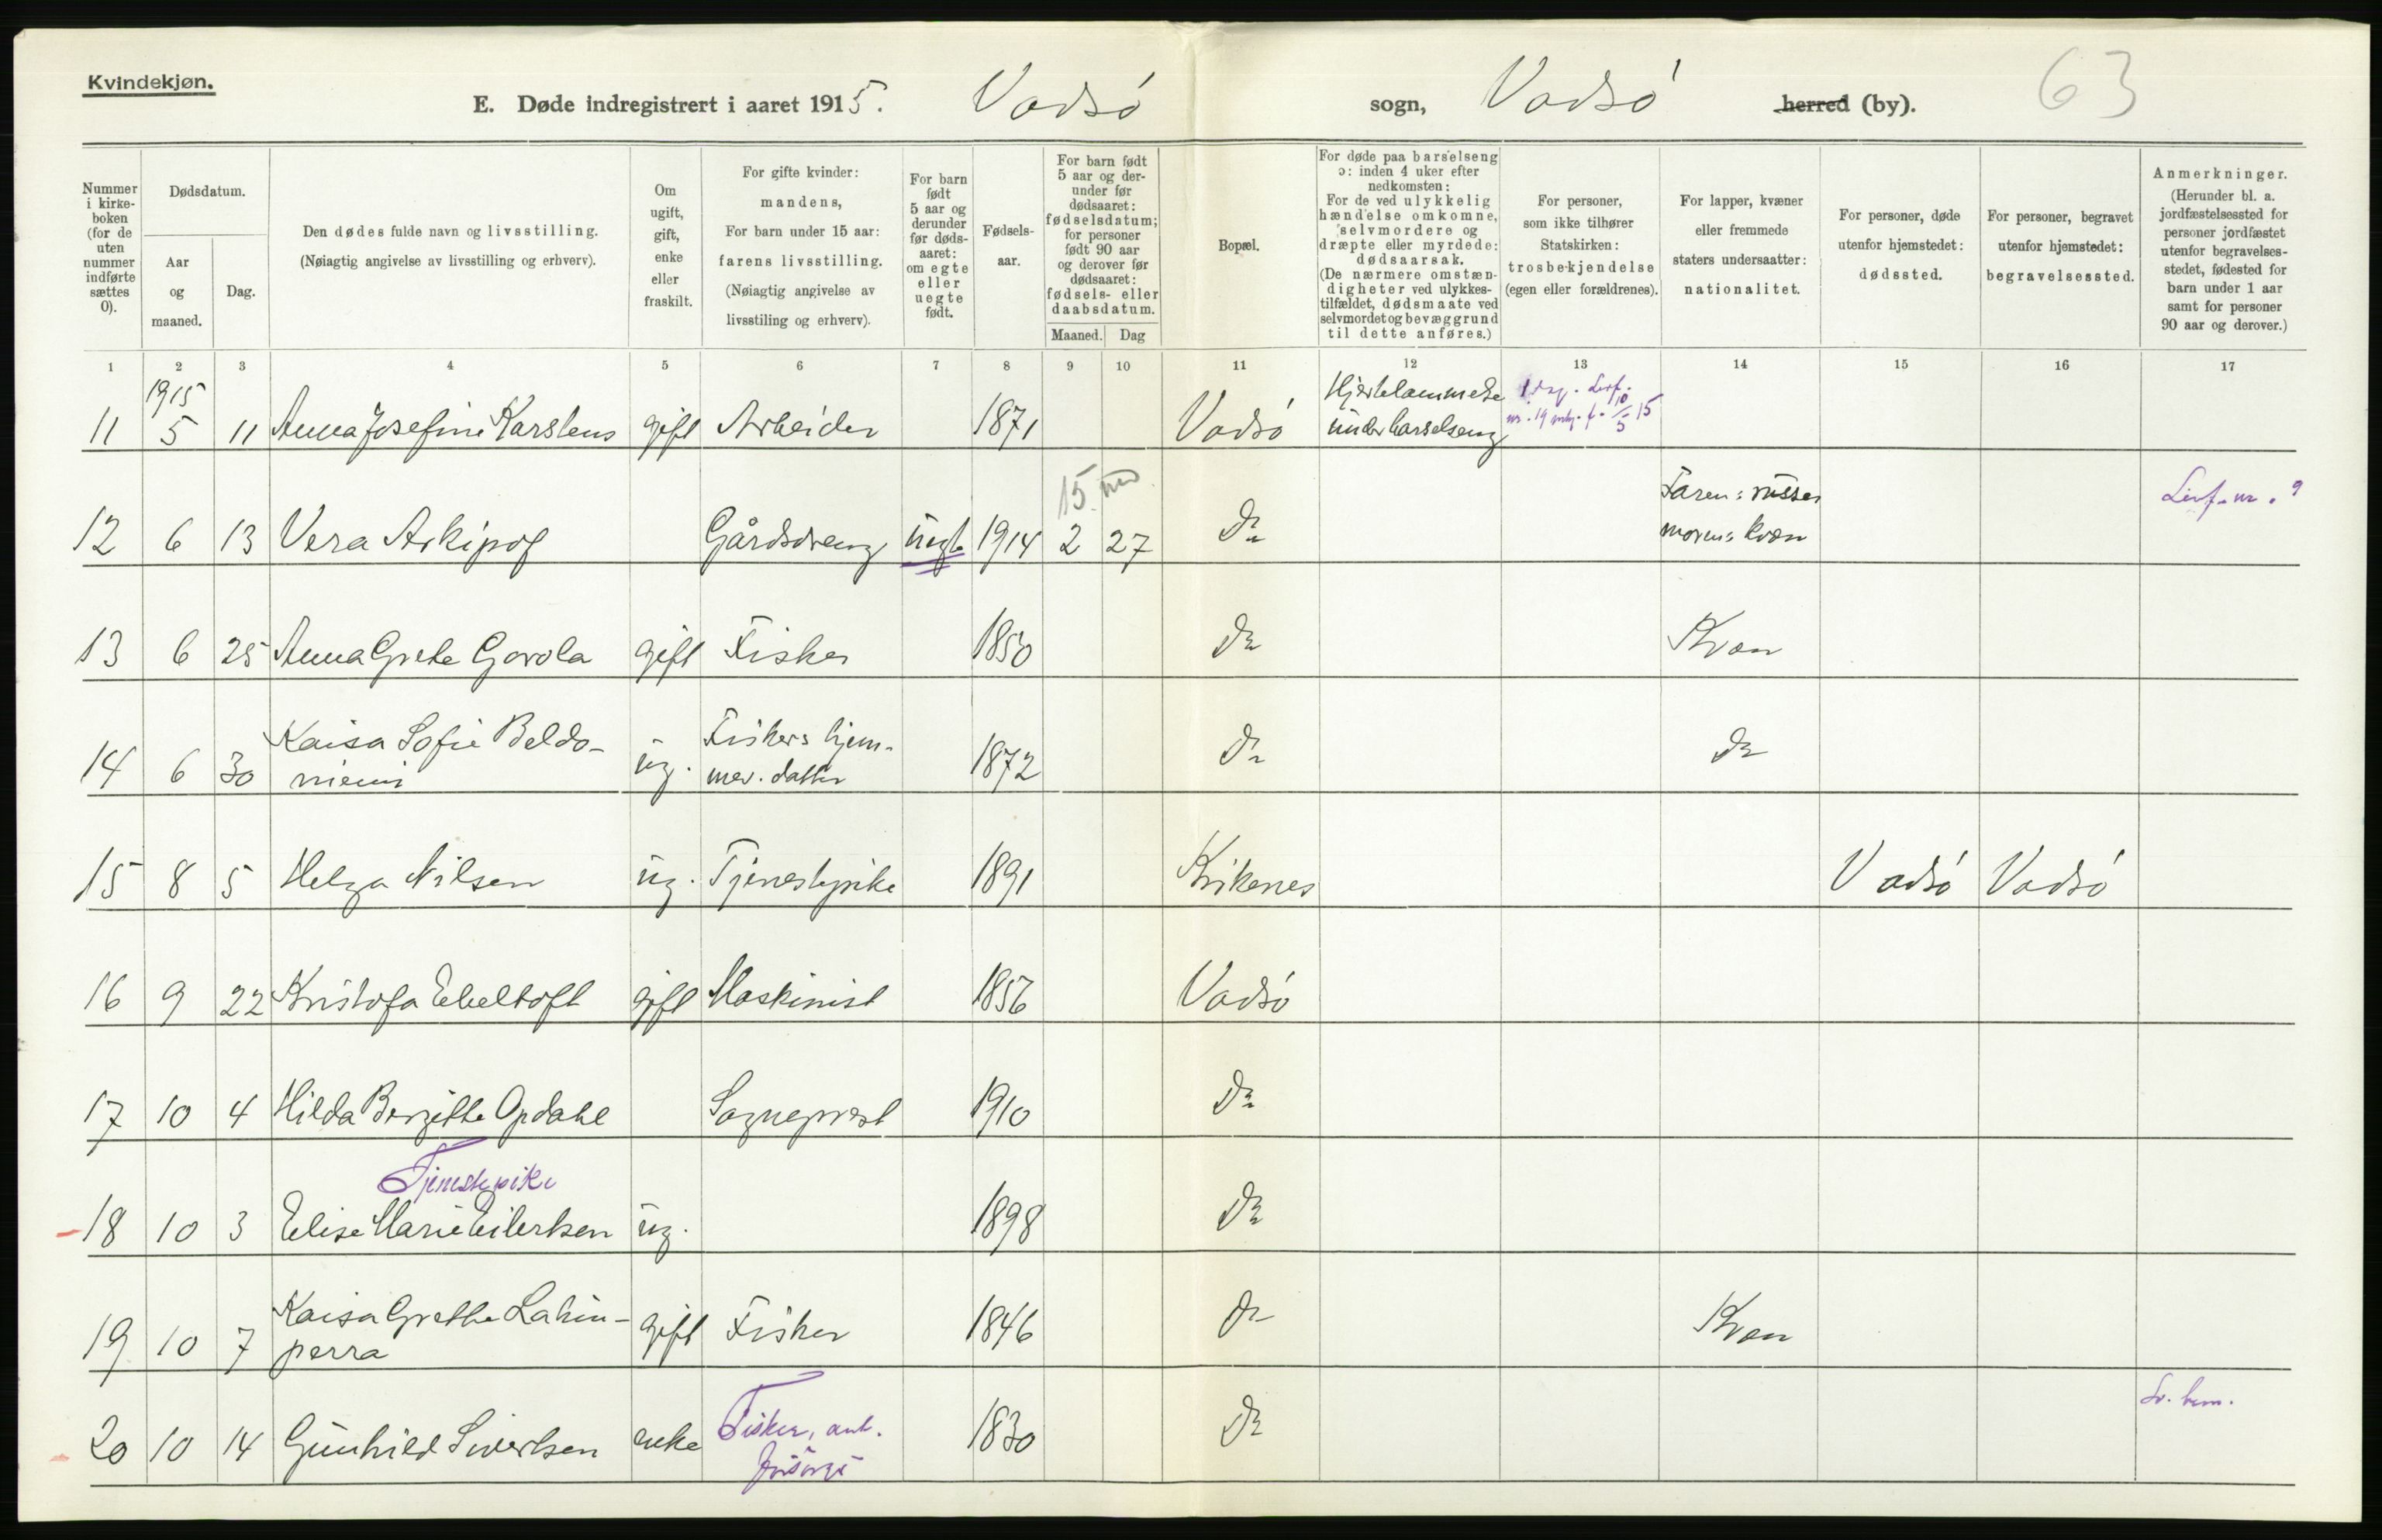 Kvindekjøn.
E. Døde indregistrert i aaret 1915. Vadsø sogn, Vadsø herred (by). 63
Nummer i kirke-boken (for de uten nummer indførte sættes 0).
Dødsdatum.
Aar og maaned.
Dag.
Den dødes fulde navn og livsstilling.
(Nøiagtig angivelse av livsstilling og erhverv).
Om ugift, gift, enke eller fraskilt.
For gifte kvinder: mandens,
For barn under 15 aar: farens livsstilling.
(Nøiagtig angivelse av livsstiling og erhverv).
For barn født 5 aar og derunder før døds-aaret: om egte eller uegte født.
Fødsels-aar.
For barn født 5 aar og der-under før dødsaaret: fødselsdatum; for personer født 90 aar og derover før dødsaaret: fødsels- eller daabsdatum.
Maaned. Dag
Bopæl.
For døde paa barselseng ɔ: inden 4 uker efter nedkomsten:
For de ved ulykkelig hændelse omkomne, selvmordere og dræpte eller myrdede: dødsaarsak.
(De nærmere omstæn-digheter ved ulykkes-tilfældet, dødsmaate ved selvmordet og bevæggrund til dette anføres.)
For personer, som ikke tilhører Statskirken: trosbekjendelse (egen eller forældrenes).
For lapper, kvæner eller fremmede staters undersaatter: nationalitet.
For personer, døde utenfor hjemstedet: dødssted.
For personer, begravet utenfor hjemstedet: begravelsessted.
Anmerkninger.
(Herunder bl. a. jordfæstelsessted for personer jordfæstet utenfor begravelses-stedet, fødested for barn under 1 aar samt for personer 90 aar og derover.)
1 2 3 4 5 6 7 8 9 10 11 12 13 14 15 16 17
1915
11 5 11 Anna Josefine Karstens gift Arbeider 1871 Vadsø Hjertelammelse
under barselseng
nr. 19 15
15 md
12 6 13 Vera Arkipof Gårdsdreng uegte 1914 2 27 Do Faren: russer
moren: kvæn
Levf. nr. 9
13 6 25 Anna Grete Gorola gift Fisker 1850 Do Kvæn
14 6 30 Kaisa Sofie Beldo-
niemi ug. Fiskers hjem-
mev. datter 1872 Do Do
15 8 5 Helga Nilsen ug. Tjenestepike 1891 Kirkenes Vadsø Vadsø
16 9 22 Kristofa Ebeltoft gift Maskinist 1856 Vadsø
17 10 4 Hilda Bergitte Opdahl Sogneprest 1910 Do
Tjenestepike
18 10 3 Elise Marie Eilertsen ug. 1898 Do
19 10 7 Kaisa Grethe Lahin-
perra gift Fisker 1846 Do Kvæn
20 10 14 Gunhild Sivertsen enke Fisker, ant.
forsørges 1830 Do